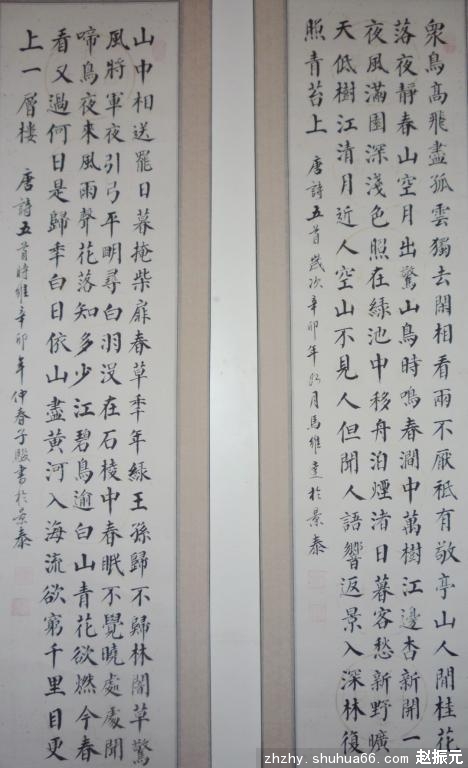 衆鳥高飛盡孤雲獨去閒相看兩不厭祇有敬亭山人閒桂花
落夜靜春山空月出驚山鳥時鳴春澗中萬樹江邊杏新開一
夜風滿園深淺色照在緑池中移舟泊煙渚日暮客愁新野曠
天低樹江清月近人空山不見人但聞人語響返景入深林復
照青苔上 唐詩五首歲次辛卯年月馬維於景泰
山中相送罷日暮掩柴扉春草秊年緑王孫歸不歸林闇草驚
風將軍夜引弓平明尋白羽没在石棱中春眠不覺曉處處聞
啼鳥夜來風雨聲花落知多少江碧鳥逾白山青花欲燃今春
看又過何日是歸秊白日依山盡黃河入海流欲窮千里目更
上一層樓 唐詩五首時維辛卯年仲春子書於景泰
zhzhy.shuhua66.com 赵振元